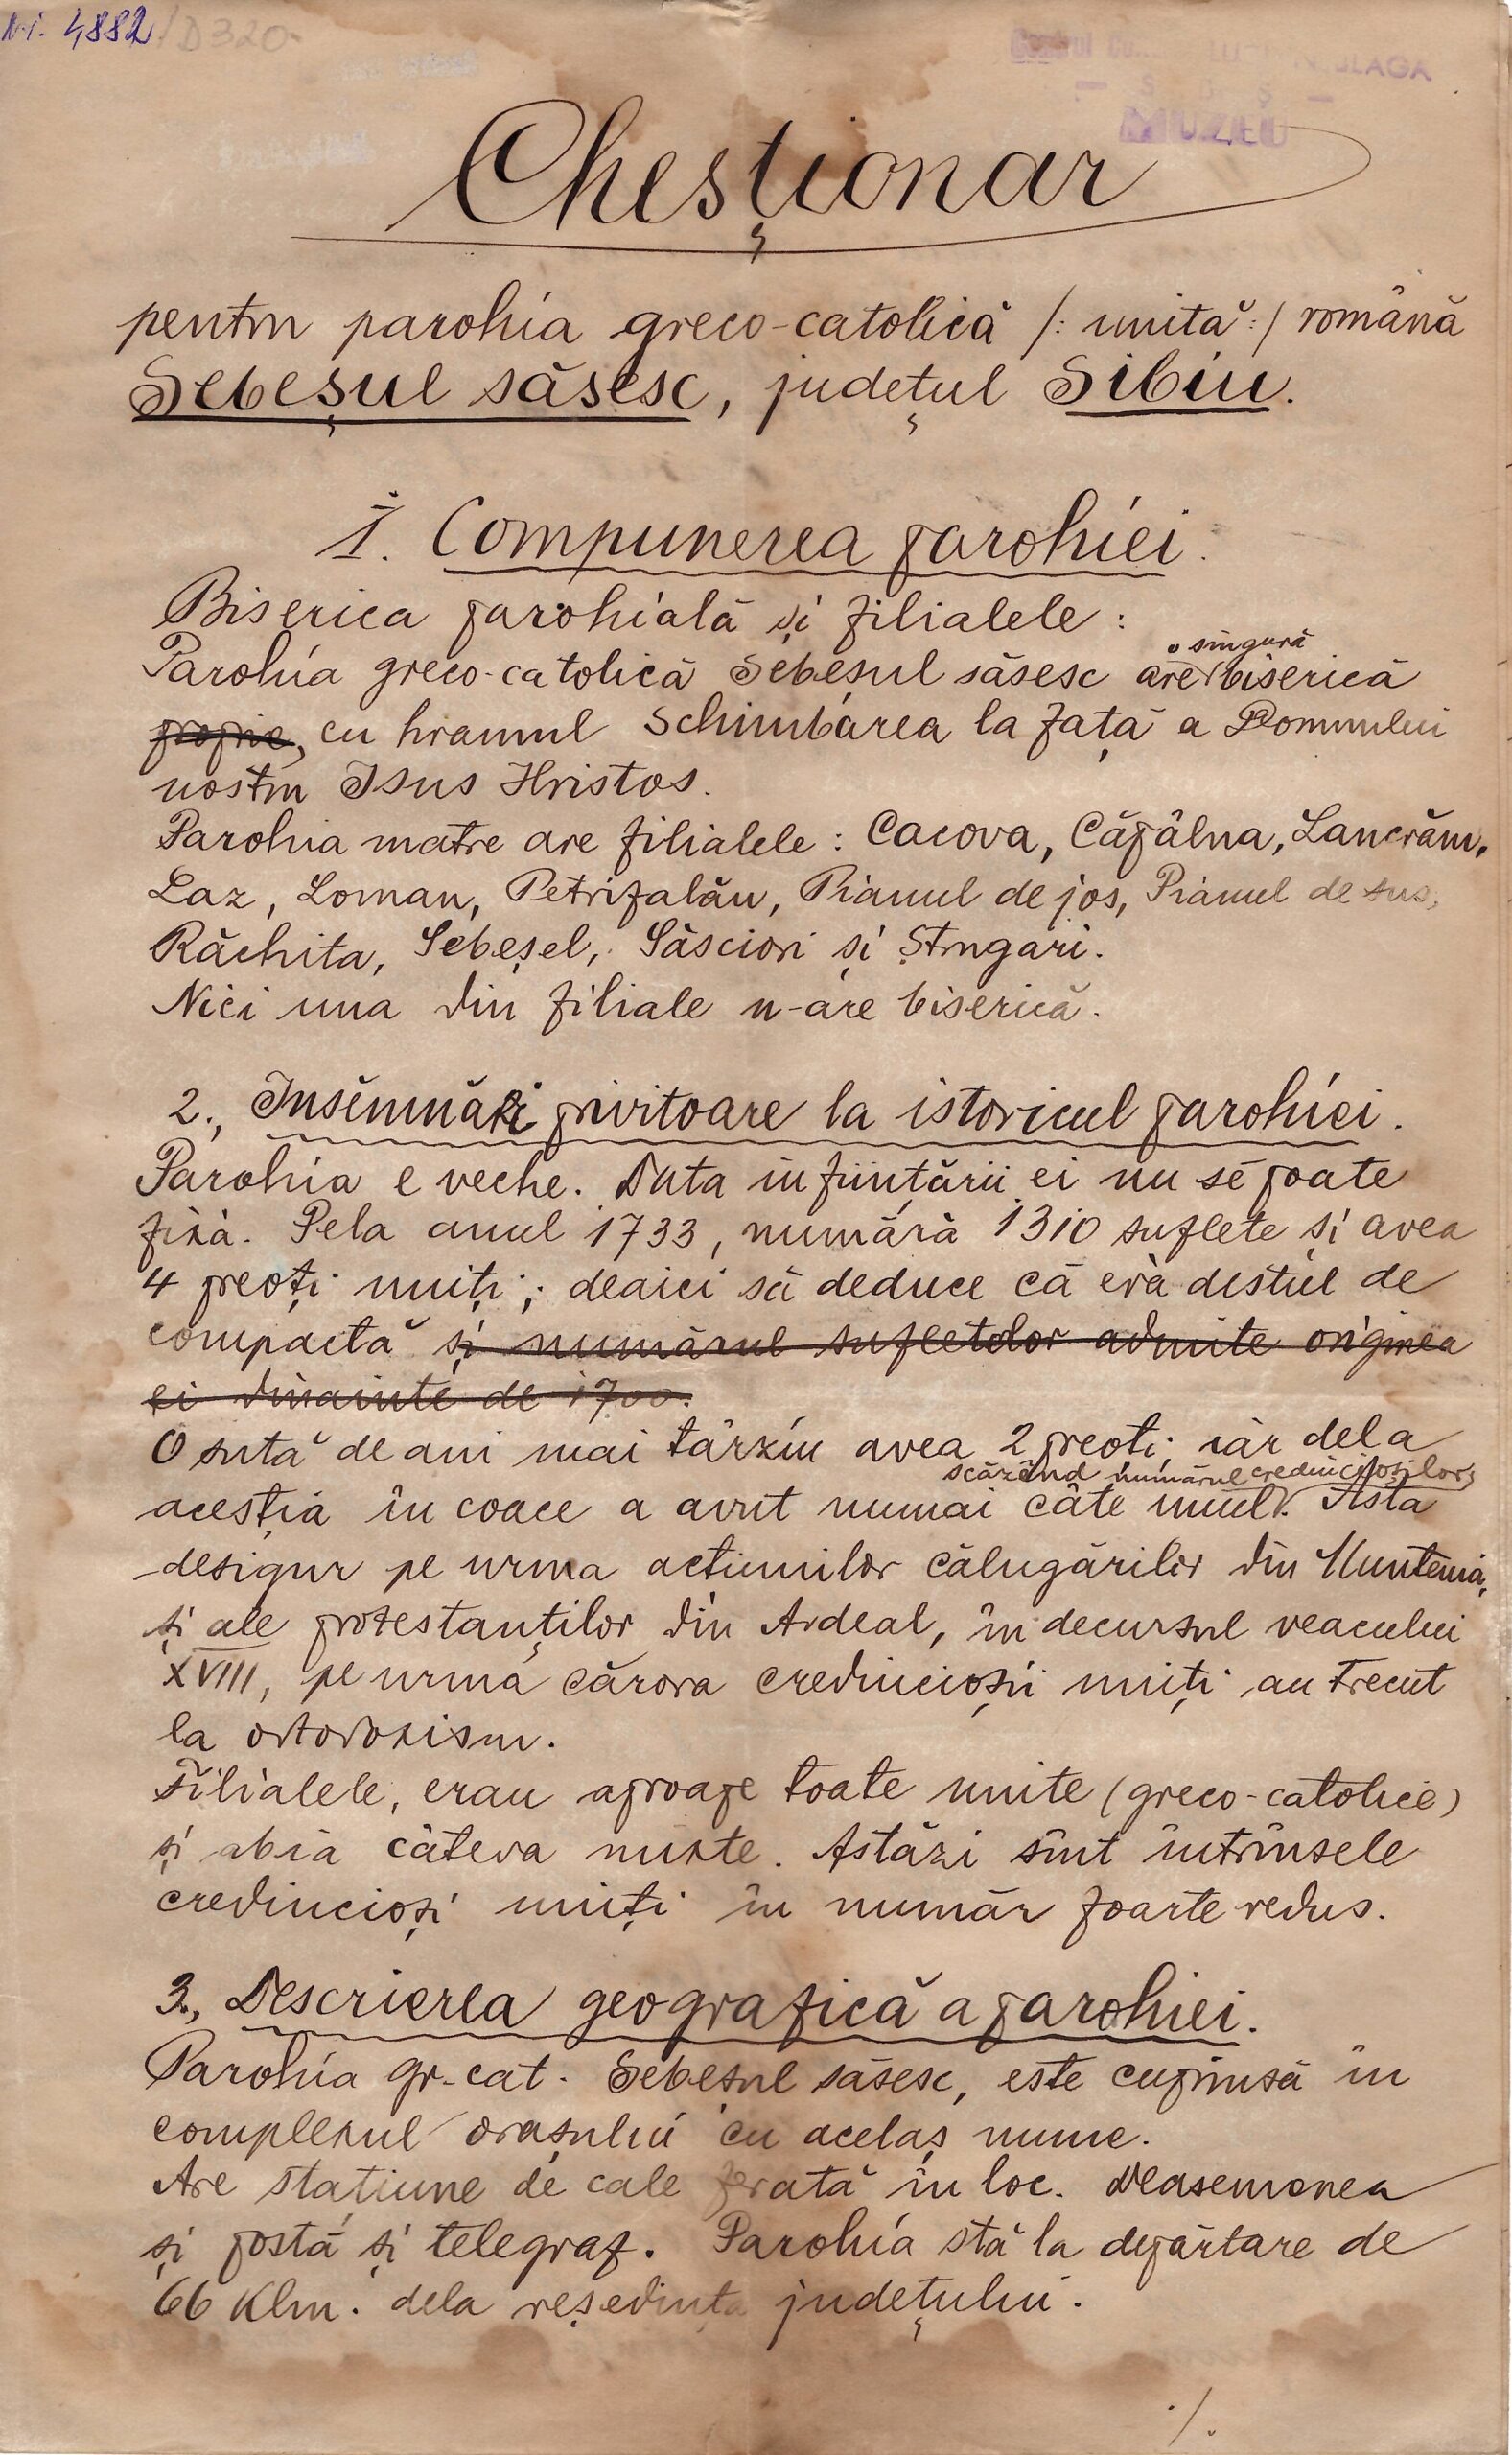 N.i. 4882 / D320
LUCIAN BLAGA
MUZEU
Chesționar
pentru parohia greco-catolică /: unită :/ română
Sebeșul săsesc, județul Sibiu.
1. Compunerea parohiei.
Biserica parohială și filialele:
Parohia greco-catolică Sebeșul săsesc are o singură biserică
proprie, cu hramul Schimbarea la față a Domnului
nostru Isus Hristos.
Parohia matre are filialele: Cacova, Căpâlna, Lancrăm,
Laz, Loman, Petrifalău, Pianul de jos, Pianul de sus,
Răchita, Sebeșel, Săsciori și Ștrugari.
Nici una din filiale n-are biserică.
2., Însemnări privitoare la istoricul parohiei.
Parohia e veche. Data înființării ei nu se poate
fixà. Pela anul 1733, numără 1310 suflete și avea
4 preoți uniți; deaici să deduce că erà destul de
compactă și numărul sufletelor admite originea
ei dinainte de 1700.
O sută de ani mai târziu avea 2 preoți; iar dela
aceștia în coace a avut numai câte unul, scăzând numărul credincioșilor. Asta
desigur pe urma acțiunilor călugărilor din Muntenia,
și ale protestanților din Ardeal, în decursul veacului
XVIII, pe urma cărora credincioșii uniți au trecut
la ortodoxism.
Filialele, erau aproape toate unite (greco-catolice)
și abia câteva mixte. Astăzi sînt întrînsele
credincioși uniți în număr foarte redus.
3., Descrierea geografică a parohiei.
Parohia gr-cat. Sebeșul săsesc, este cuprinsă în
complexul orașului cu acelaș nume.
Are stațiune de cale ferată în loc. Deasemenea
și poștă și telegraf. Parohia stă la depărtare de
66 Klm. dela reședința județului.
./.